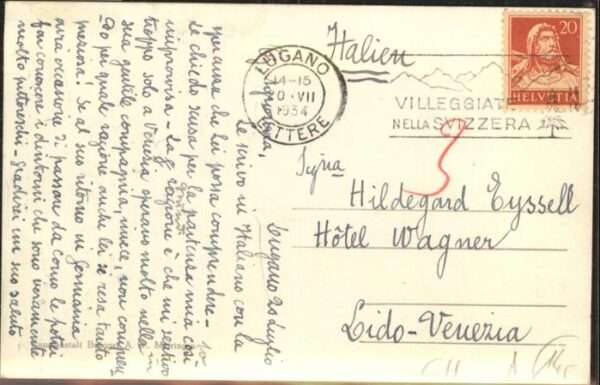 Italien
LUGANO
14-15
0 VII
1934
LETTERE
VILLEGGIAT
NELLA SVIZZERA
20
HELVETIA
3
Sigra
Hildegard Eyssell
Hôtel Wagner
Lido-Venezia
Lugano 20 luglio
Signorina,
Le scrivo in Italiano con la
speranza che lei possa comprendere- Io
le chiedo scusa per la partenza mia così
improvvisa- La ragione è che mi sentivo
troppo solo a Venezia speravo molto nella
sua gentile compagnia, invece, non compren
do per quale ragione anche lei se resa tanto
preziosa! Se al suo ritorno in Germania
avrà occasione di passare da Como le potrei
far conoscere i dintorni che sono veramente
molto pittoreschi- Gradirei un suo saluto